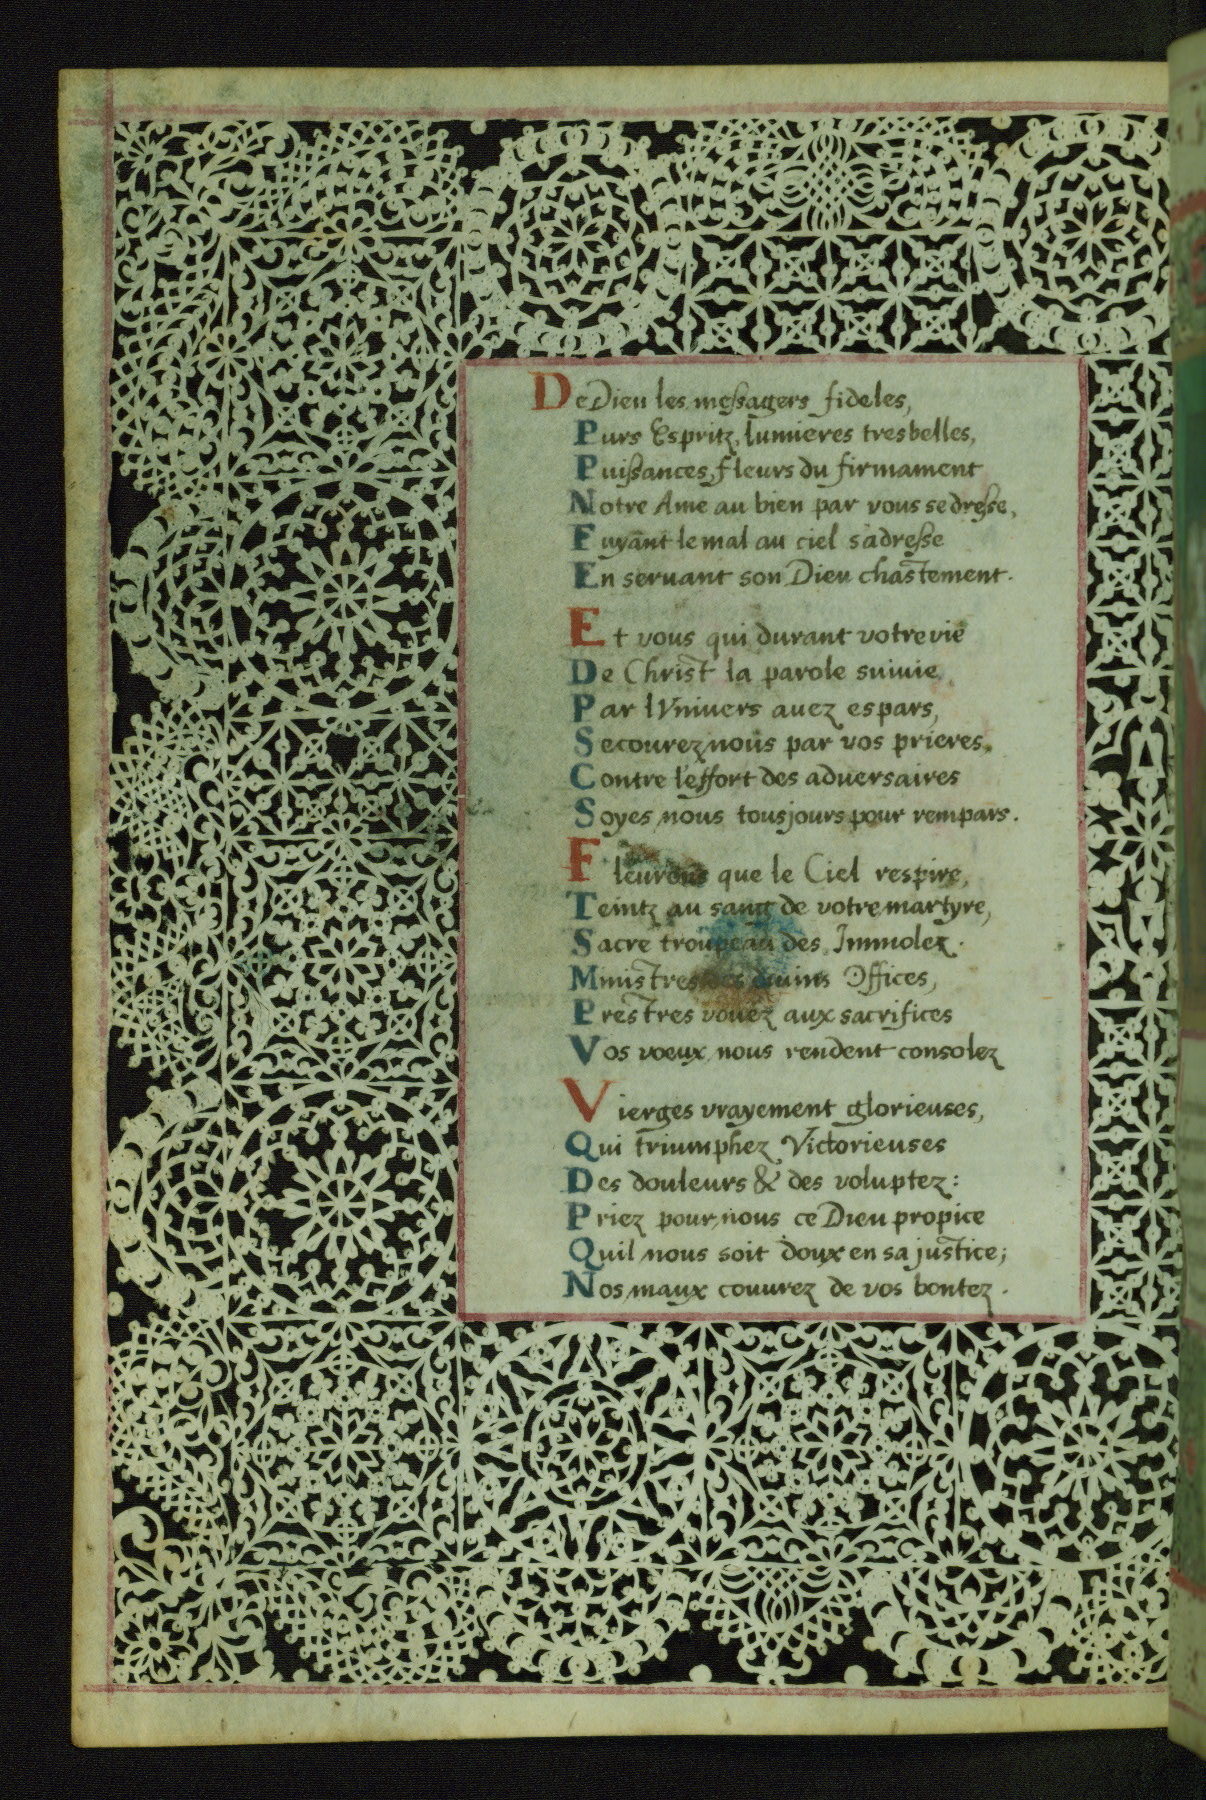 De Dieu les messagers fideles,
Purs Espritz, lumieres tresbelles,
Puissances, fleurs du firmament
Notre Ame au bien par vous se dresse,
Fuyant le mal au ciel s'adresse
En servant son Dieu chastement.
Et vous qui durant votre vie
De Christ la parole suivie,
Par lVnivers auez espars,
Secourez nous par vos prieres,
Contre l'effort des adversaires
Soyes nous tousjours pour rempars.
Fleurons que le Ciel respire,
Teintz au sang de votre martyre,
Sacre troupeau des Immolez.
Ministres des diuins Offices,
Prestres vouez aux sacrifices
Vos voeux nous rendent consolez
Vierges vrayement glorieuses,
Qui triumphez Victorieuses
Des douleurs & des voluptez:
Priez pour nous ce Dieu propice
Quil nous soit doux en sa justice;
Nos maux couurez de vos bontez.